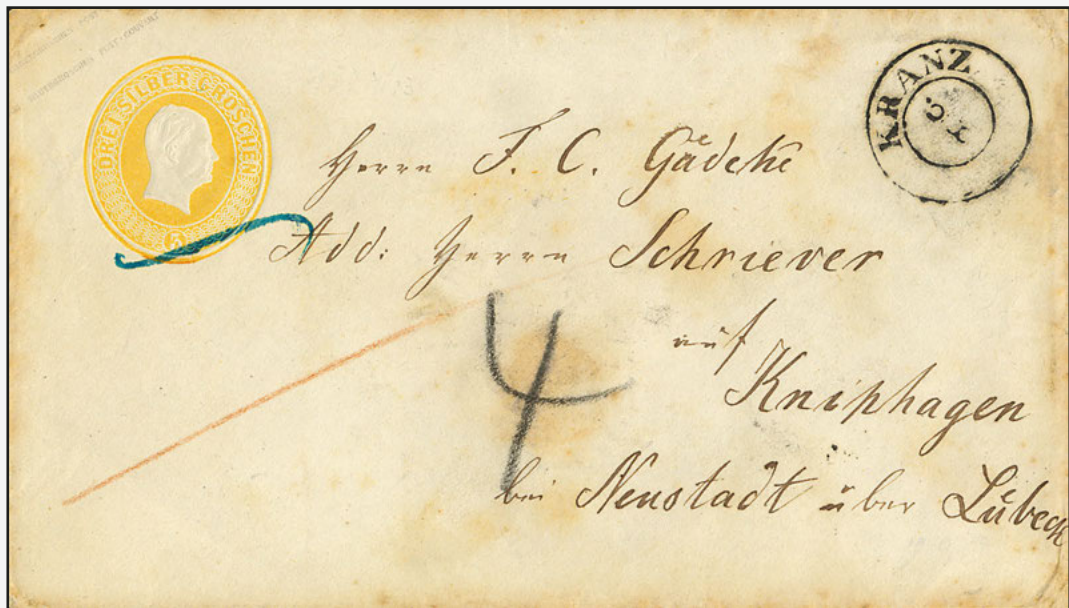 DREI SILBER GROSCHEN
3
KRANZ
Herrn F. C. Gädeke
Add: Herrn Schriever
4
auf
Kniphagen
bei Neustadt über Lübeck